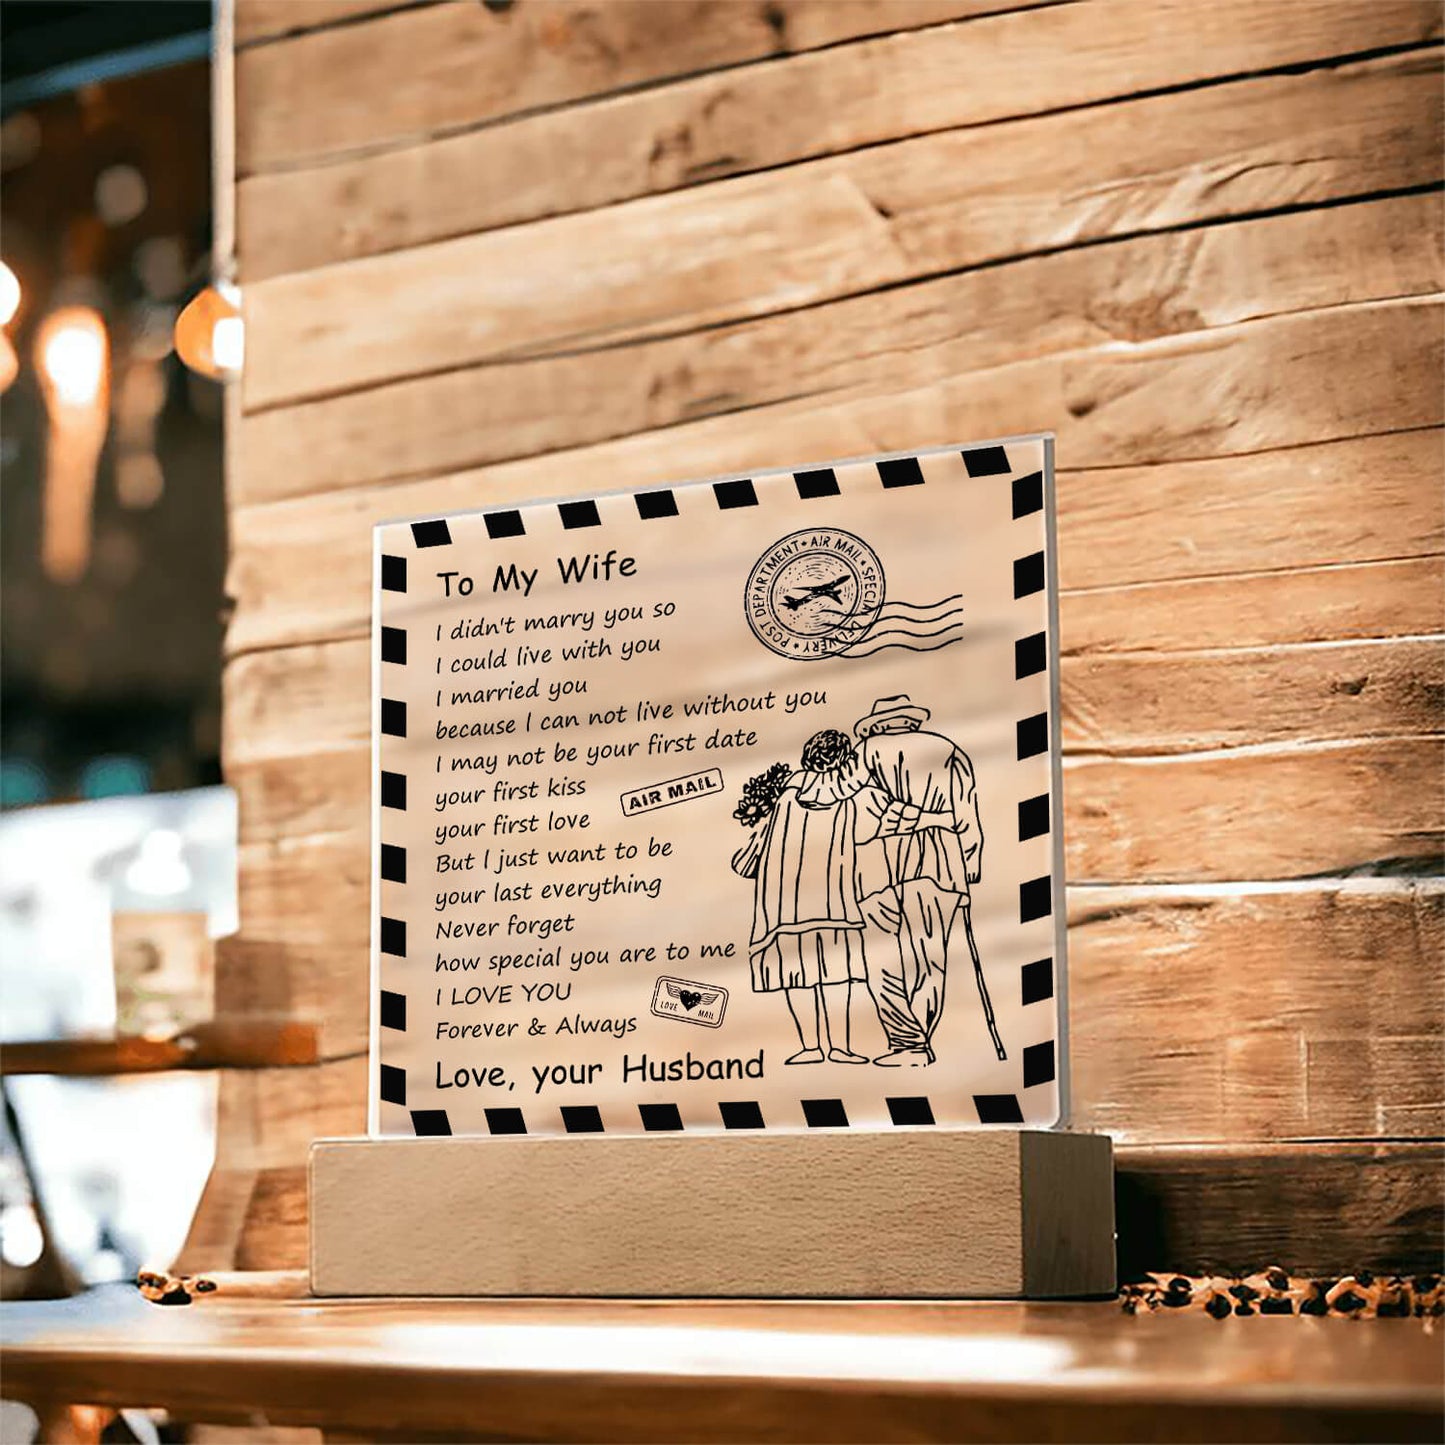 To My Wife
I didn't marry you so
I could live with you
I married you
because I can not live without you
I may not be your first date
your first kiss
your first love
But I just want to be
your last everything
Never forget
how special you are to me
I LOVE YOU
Forever & Always
Love, your Husband
POST DEPARTMENT • AIR MAIL • SPECIAL DELIVERY •
AIR MAIL
LOVE MAIL